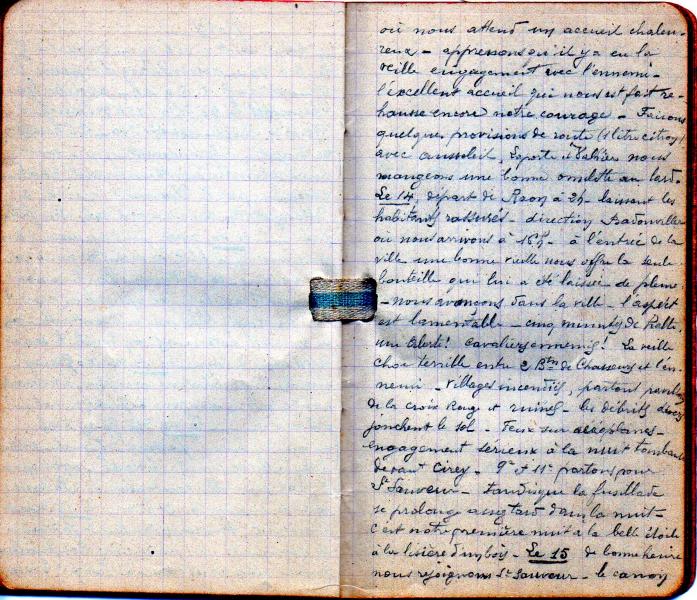 où nous attend un accueil chaleu-
reux - apprenons qu'il y a eu la
veille engagement avec l'ennemi -
l'excellent accueil qui nous est fait re-
hausse encore notre courage - Faisons
quelques provisions de route (1 litre citron)
avec Laporte et nous
mangeons une bonne omelette au lard.
Le 14, départ de Raon à 2h - laissant les
habitants rassurés - direction Badonviller
où nous arrivons à 16h - à l'entrée de la
ville une bonne vieille nous offre la seule
bouteille qui lui a été laissée de pleine
- nous avançons dans la ville - l'aspect
est lamentable - cinq minutes de halte,
une alerte! cavaliers ennemis! La veille
choc terrible entre 2 Btns de Chasseurs et l'en-
nemi - villages incendiés, partout pavillons
de la croix Rouge et ruines - les débris divers
jonchent le sol - Feux sur aéroplanes -
engagement sérieux à la nuit tombante
devant Cirey - 9e et 11e partons pour
St Sauveur - tandis que la fusillade
se prolonge assez tard dans la nuit -
c'est notre première nuit à la belle étoile
à la lisière d'un bois - Le 15 de bonne heure
nous rejoignons St Sauveur - le canon